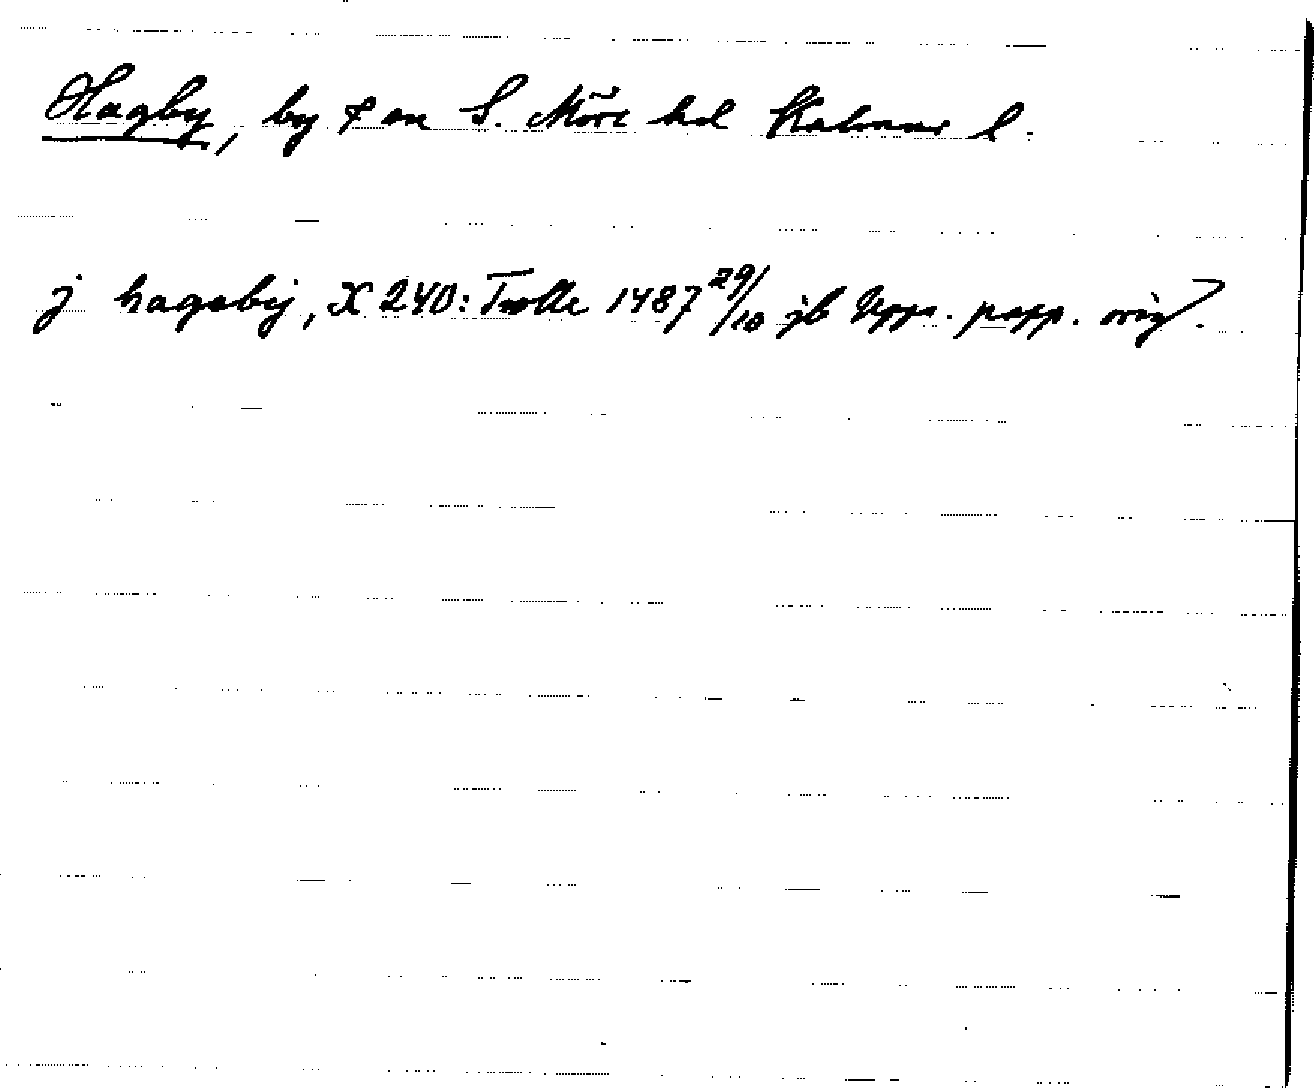 Hagby, by o sn S. Möre hd Kalmar l.
j hagaby, X 240: Trolle 1487 29/10 jb Upps. papp. orig.